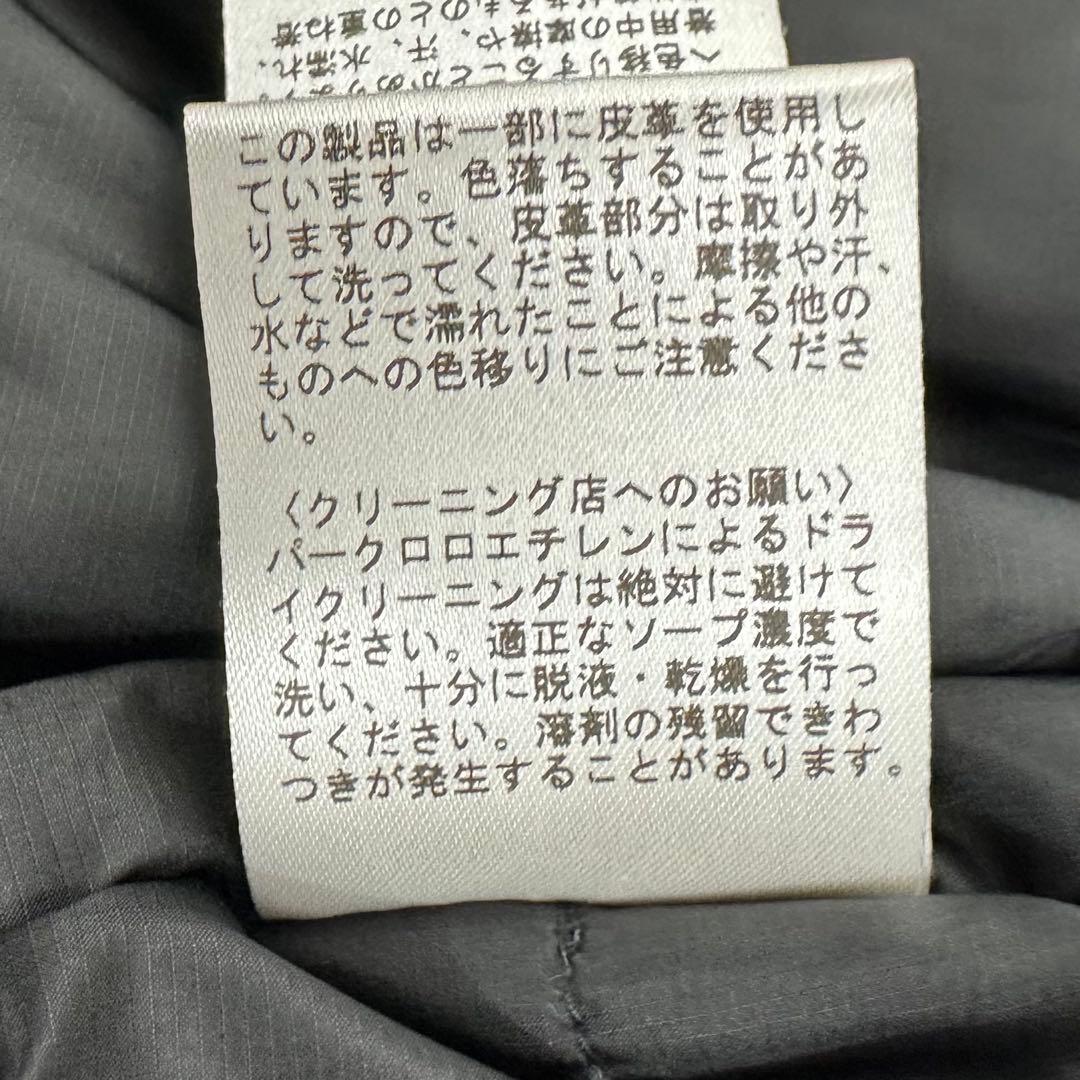 へ色移りすることがあ
着用中の摩擦や、汗、水濡れ、
この製品は一部に皮革を使用し
ています。色落ちすることがあ
りますので、皮革部分は取り外
して洗ってください。摩擦や汗、
水などで濡れたことによる他の
ものへの色移りにご注意くださ
い。
〈クリーニング店へのお願い〉
パークロロエチレンによるドラ
イクリーニングは絶対に避けて
ください。適正なソープ濃度で
洗い、十分に脱液・乾燥を行っ
てください。溶剤の残留できわ
つきが発生することがあります。